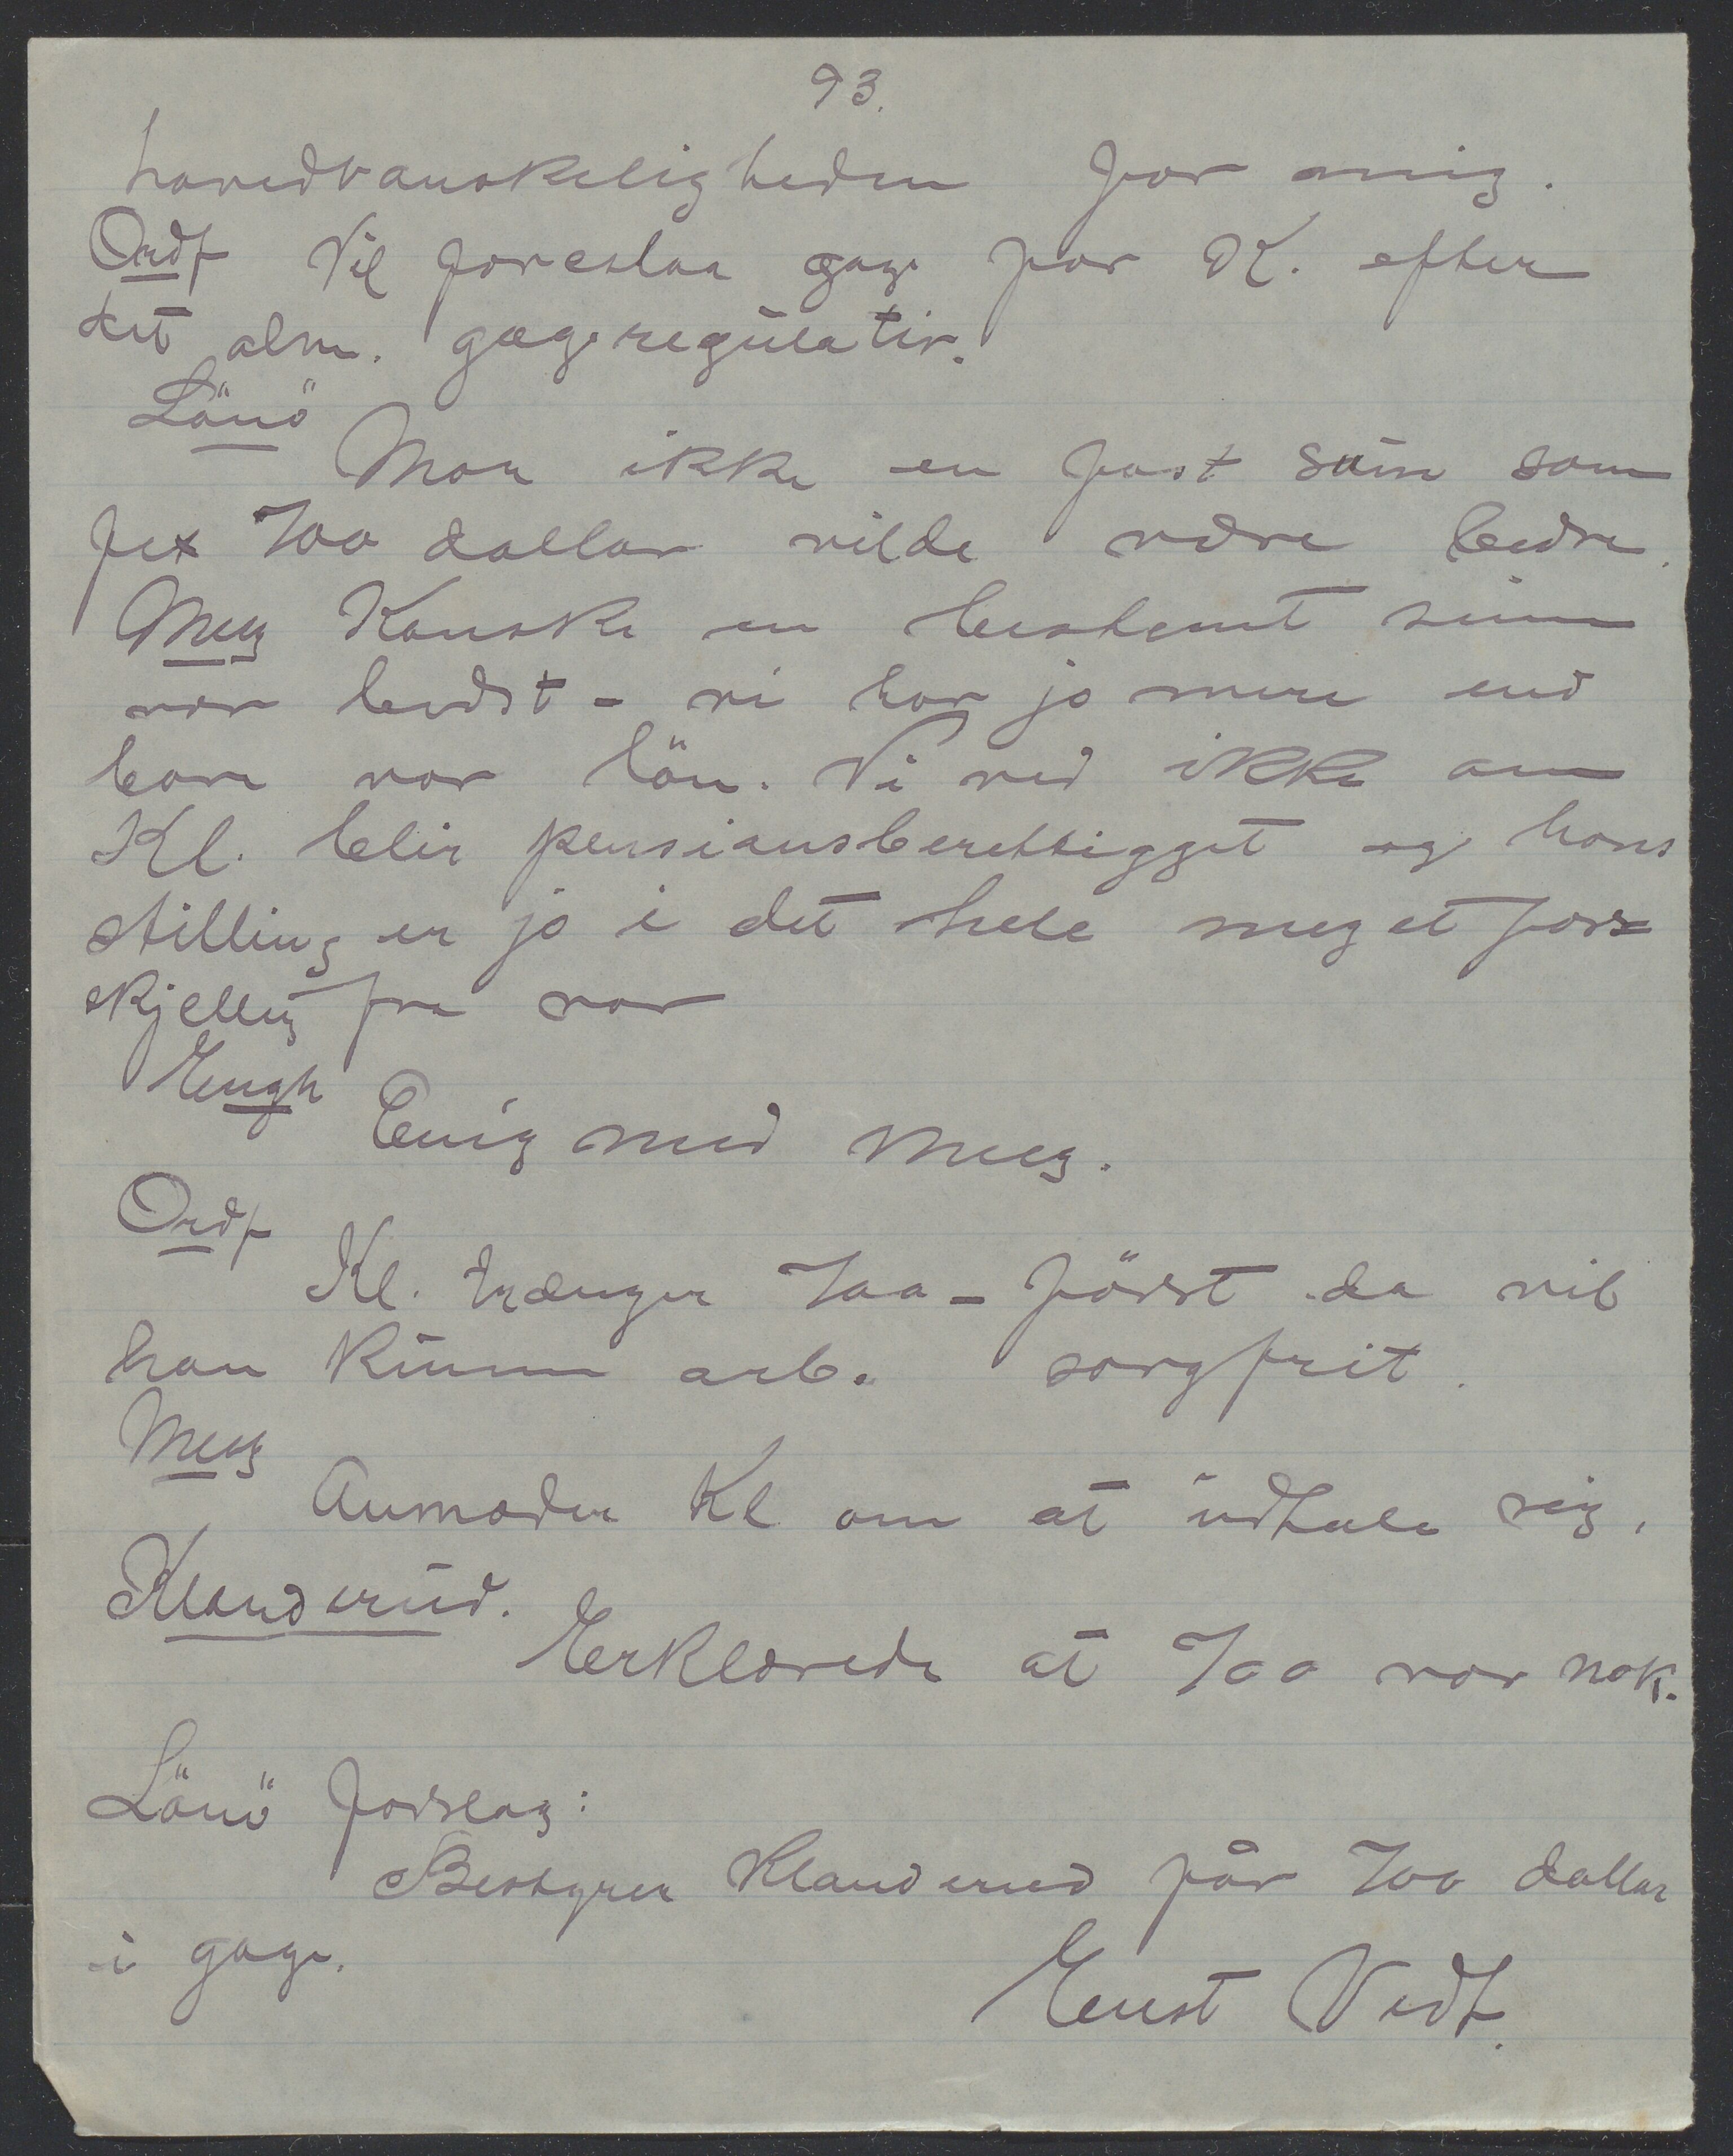 93.
hovedvanskeligheden for mig.
Ordf Vil foreslaa gage for K. efter
det alm. gageregulativ.
Lönö
Mon ikke en fast sum som
fex 700 dollar vilde være bedre.
Meeg Kanske en bestemt sum
var bedst - vi har jo mere end
bare vor lön. Vi ved ikke om
Kl. blir pensionsberettigget og hans
stilling er jo i det hele meget for=
skjellig fra vor
Engh
Enig med Meeg.
Ordf
Kl. trænger 700 - först da vil
han kunne arb. sorgfrit.
Meeg
Anmoder Kl om at udtale sig.
Klanderud.
Erklærede at 700 var nok.
Lönö forslag:
Bestyrer Klanderud får 700 dollar
i gage.
Enst Vedt.